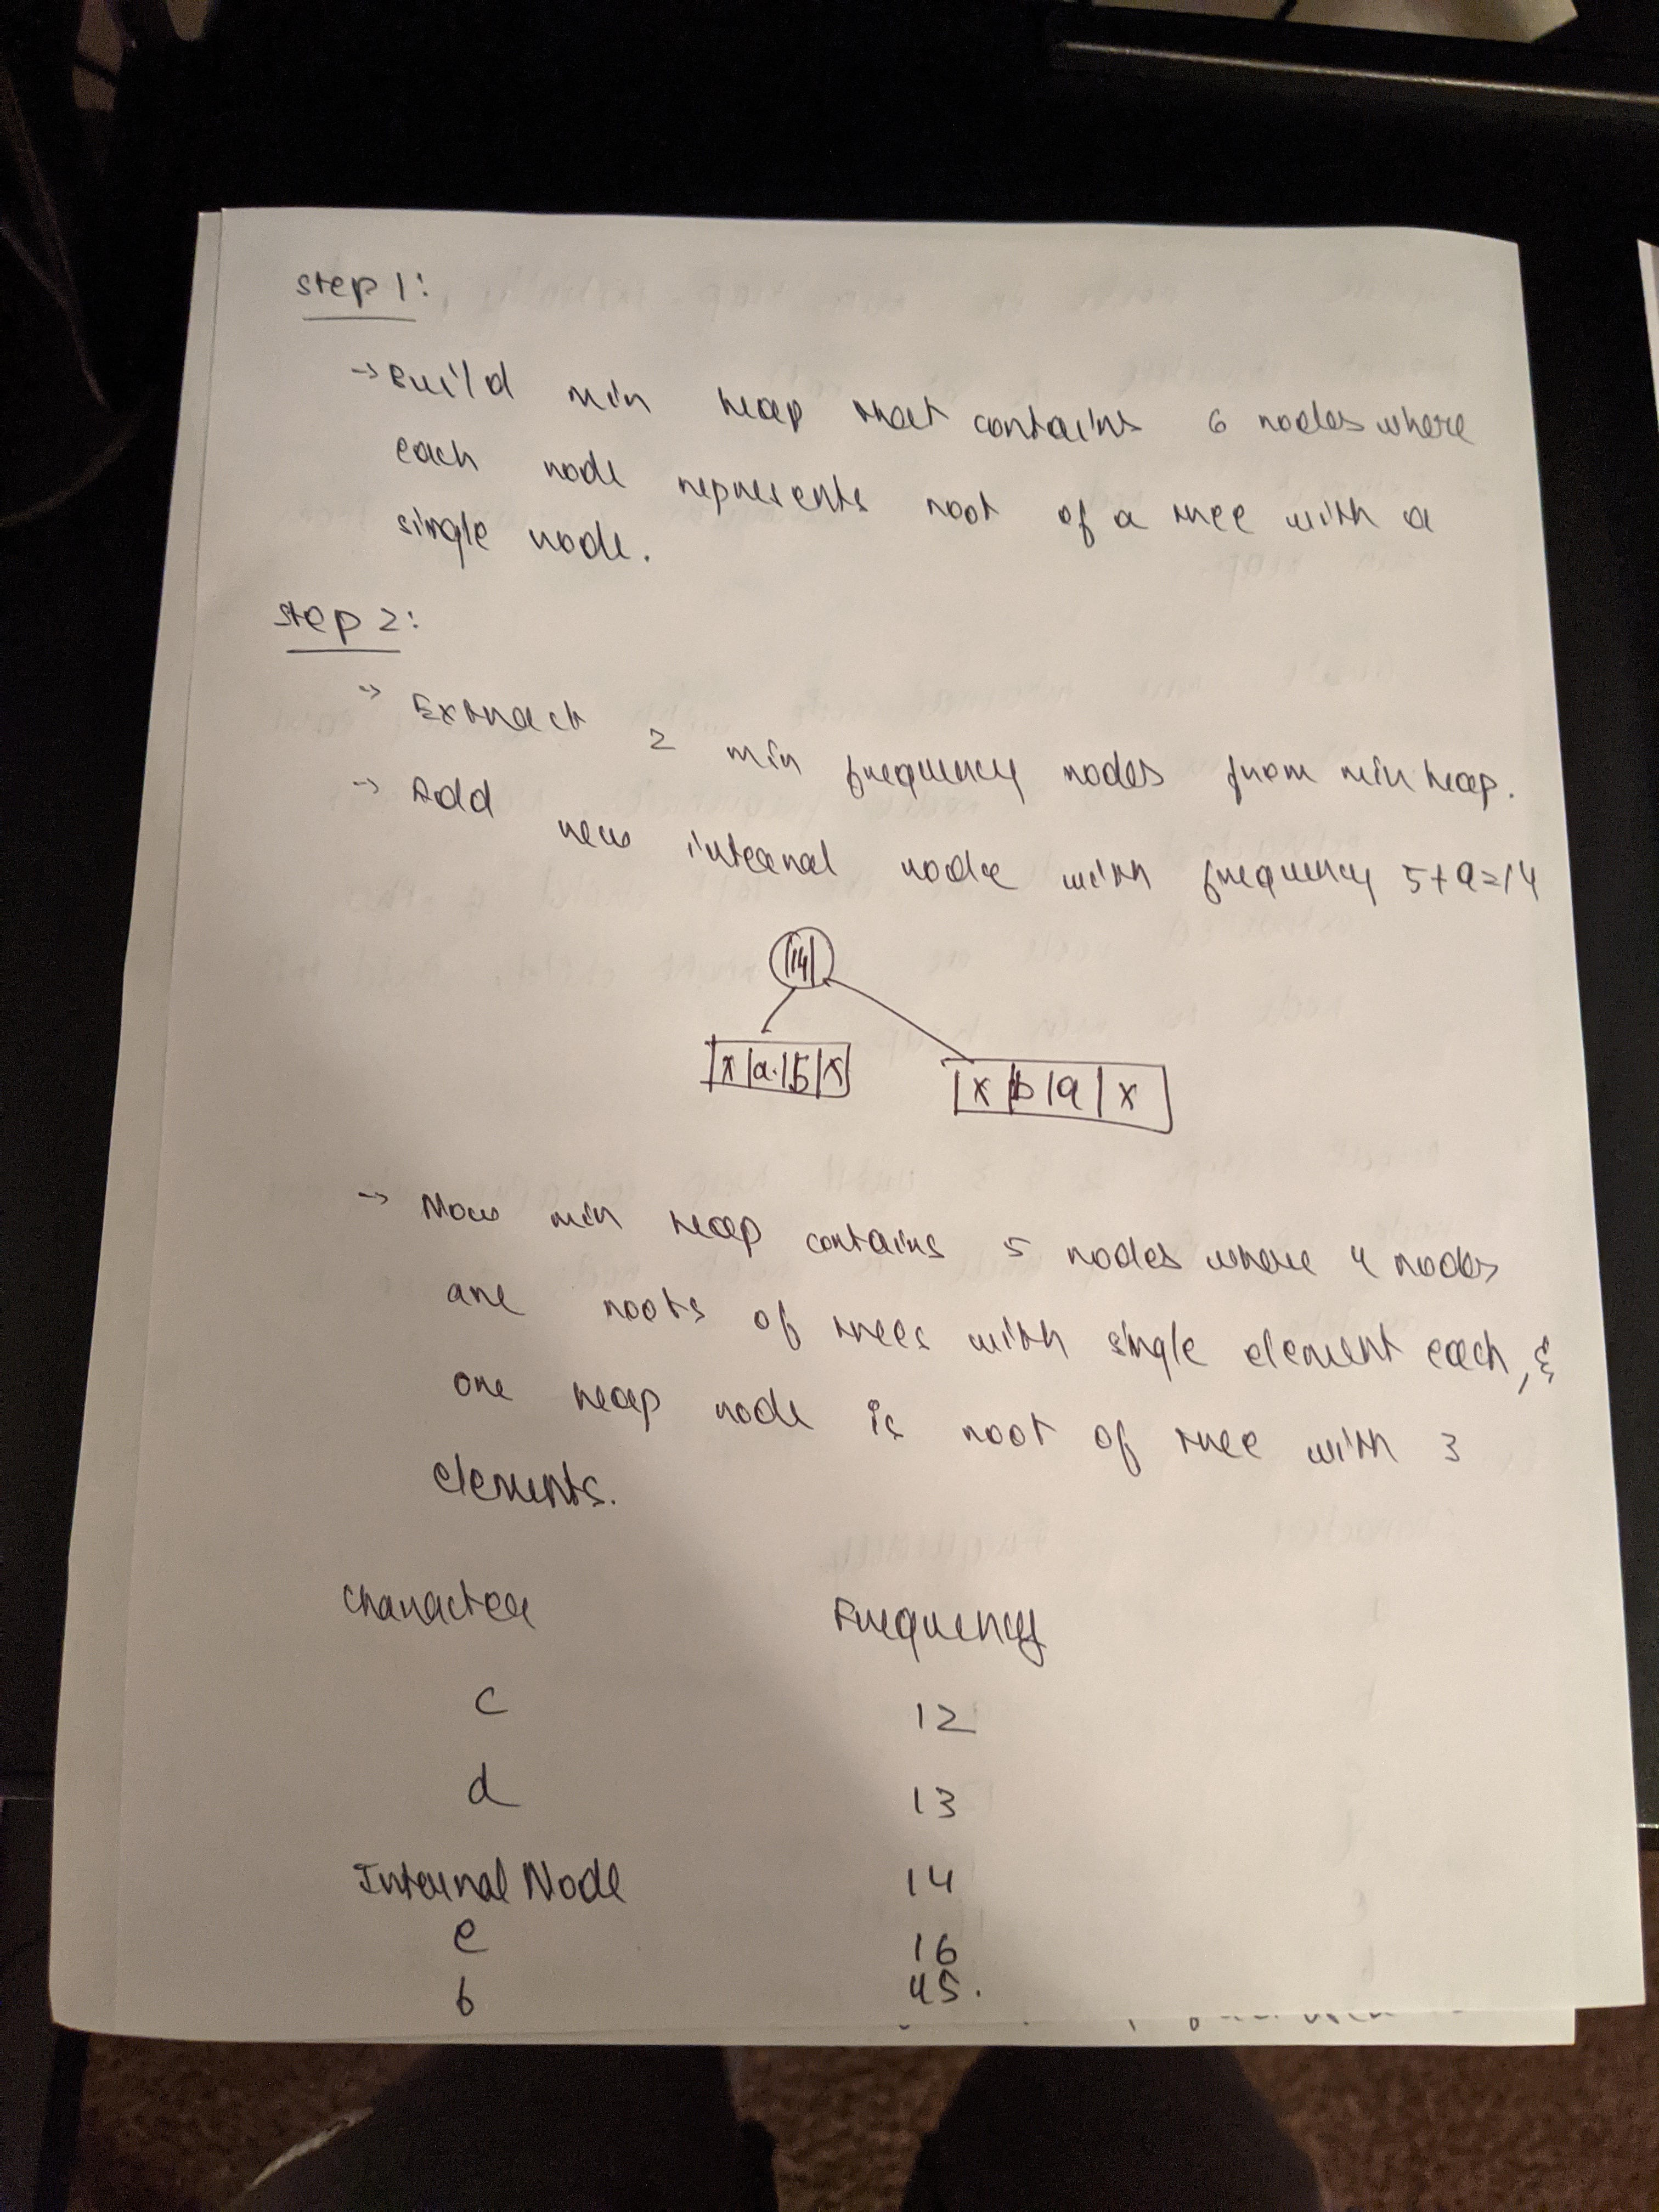 step 1:
→ Build min heap that contains 6 nodes where
each node represents root of a tree with a
single node.
step 2:
→ Extract 2 min frequency nodes from min heap.
→ Add new internal node with frequency 5+9=14
14
x a 5 x
x b 9 x
→ Now min heap contains 5 nodes where 4 nodes
are roots of trees with single element each, &
one heap node is root of tree with 3
elements.
Character Frequency
c 12
d 13
Internal Node 14
e 16
b 45.